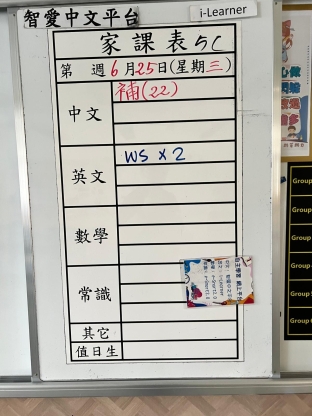 智愛中文平台
i-Learner
家課表5C
第 週6月25日(星期三)
中文
補(22)
英文
WS × 2
數學
常識
其它
值日生
Group
Group
Group
Group
Group
Group